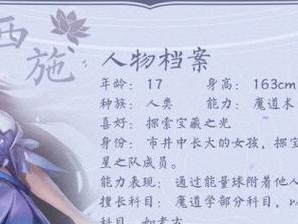 西施
人物档案
年龄：17 身高：163cm
种族：人类 能力：魔道术
喜好：探索宝藏之光
身份：市井中长大的女孩，探
星之队成员。
能力表现：通过能量球附着他人
擅长科目：魔道学部分科目，
科目，如考古